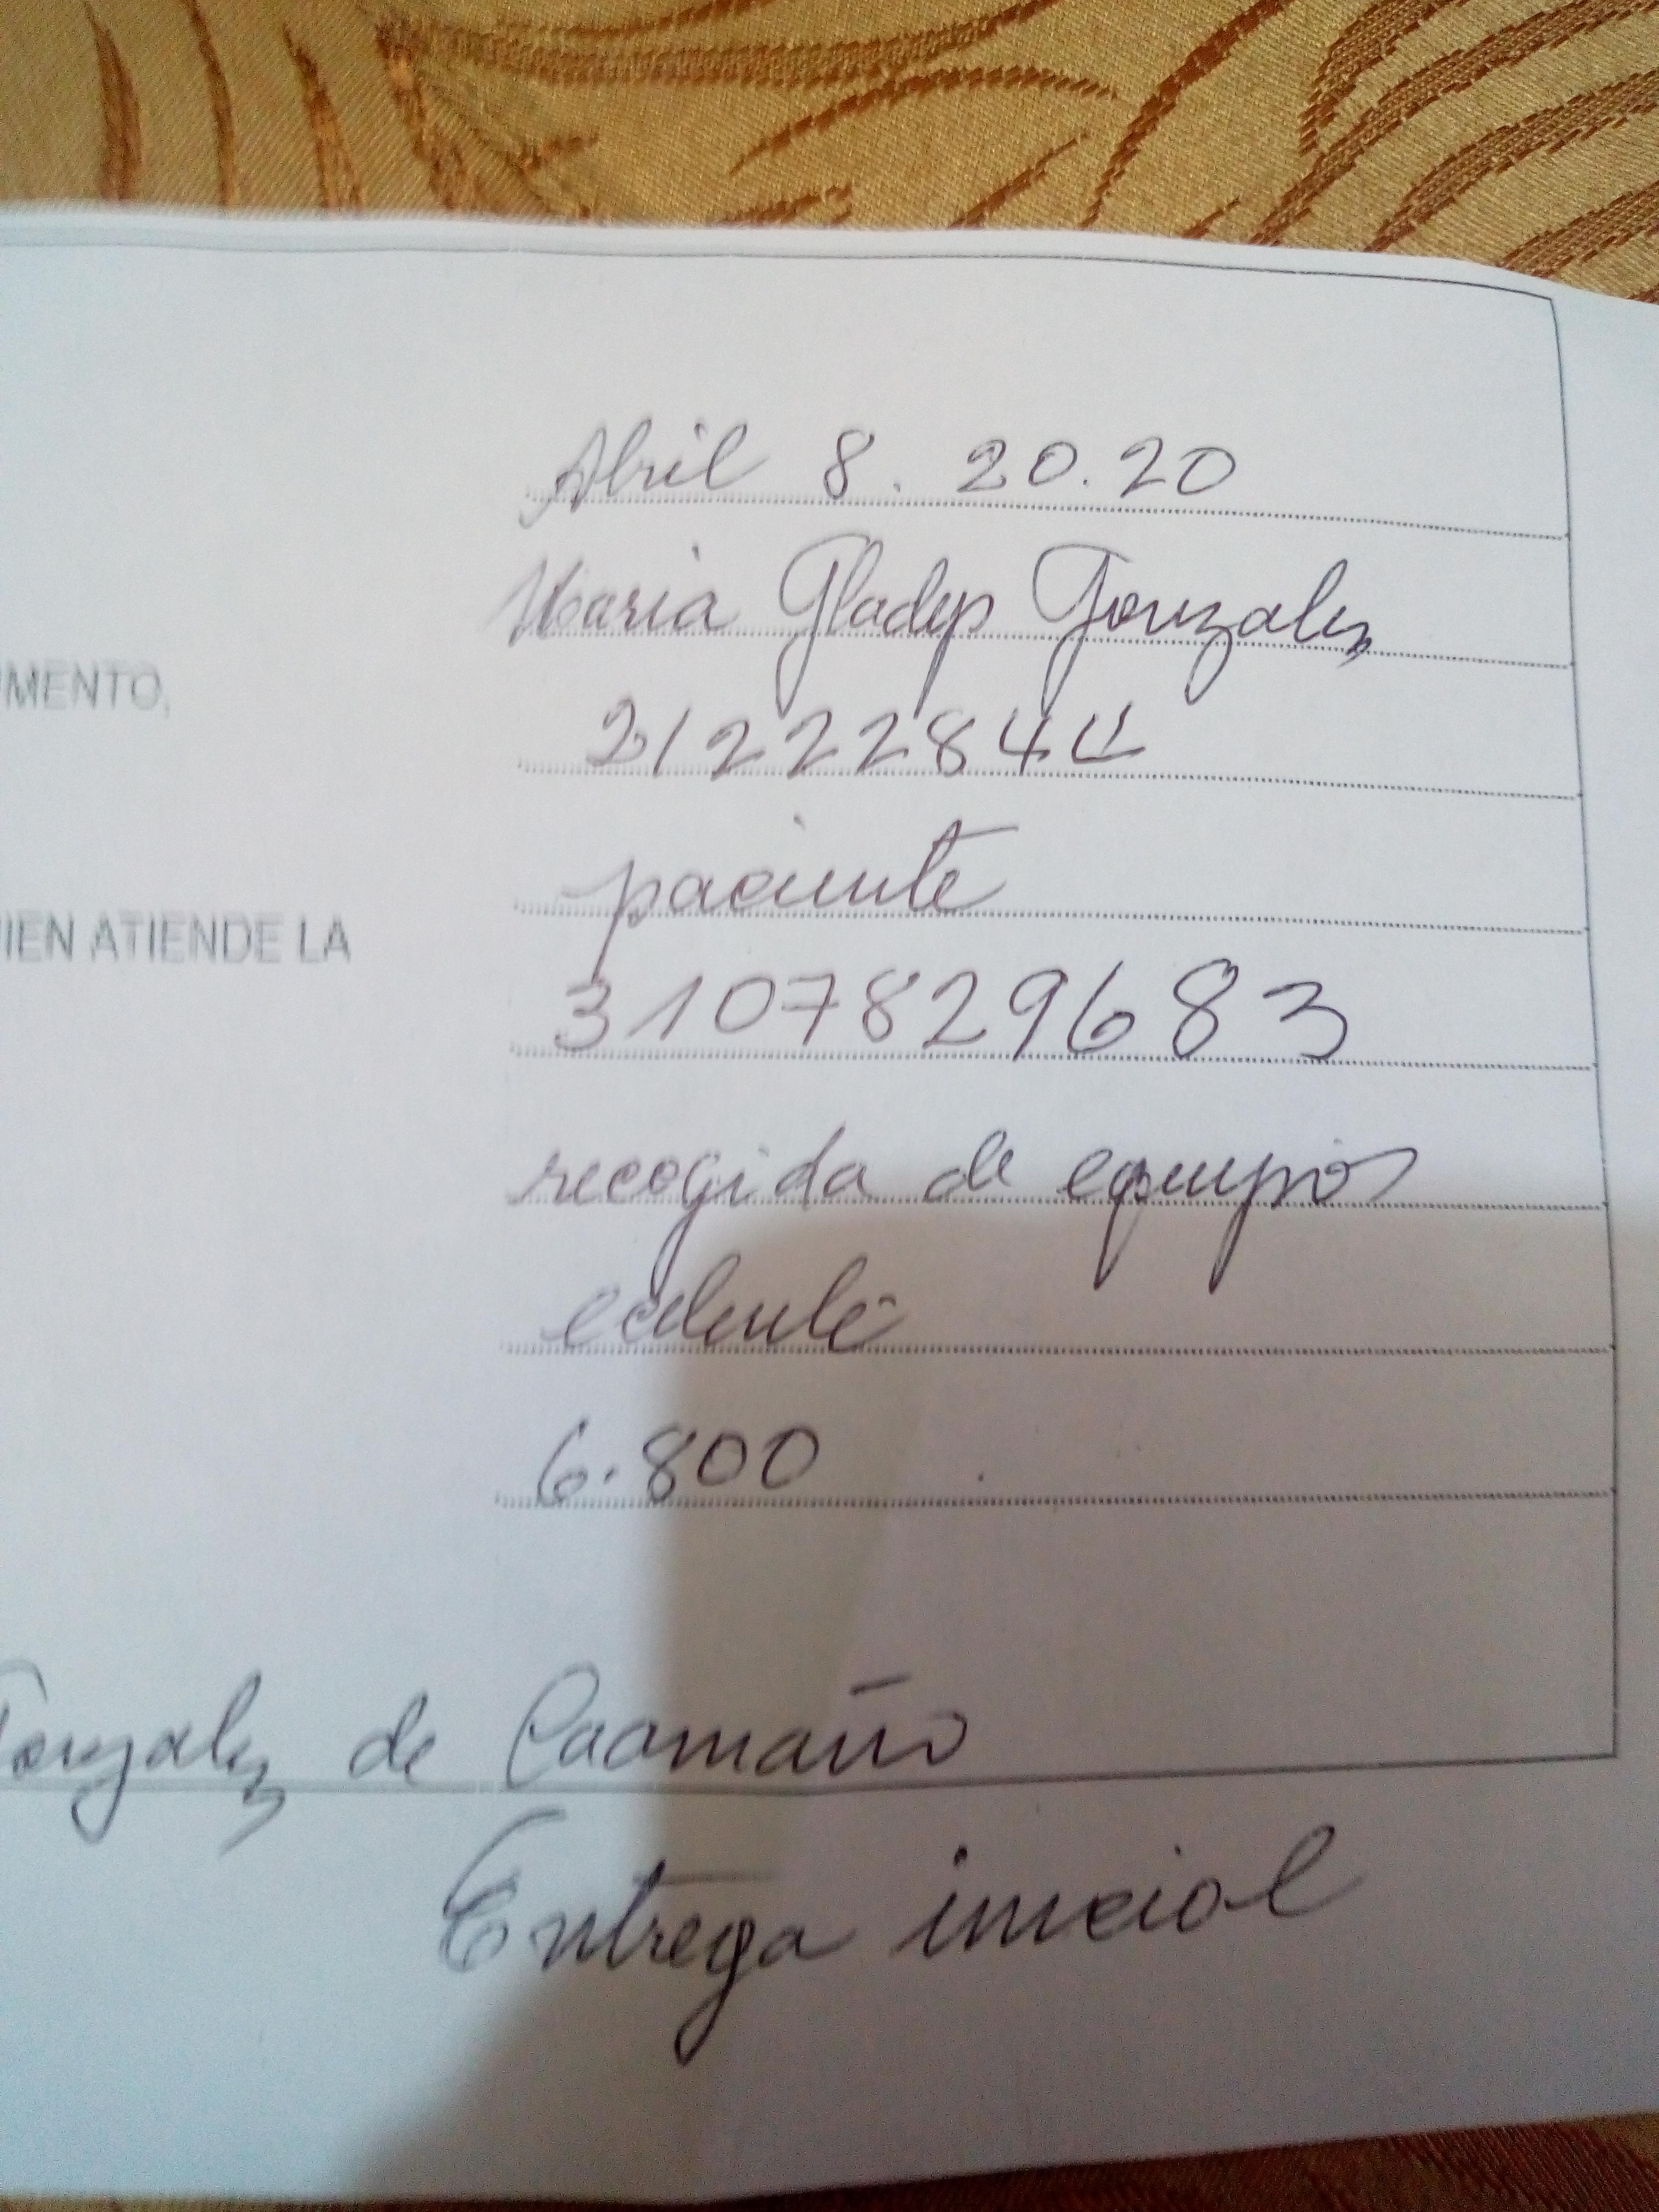 Abril 8. 20.20
Maria Gladys Gonzalez
UMENTO,
21222844
paciente
UIEN ATIENDE LA
3107829683
recogida de equipos
6.800
Gonzalez de Caamaño
Entrega inicial